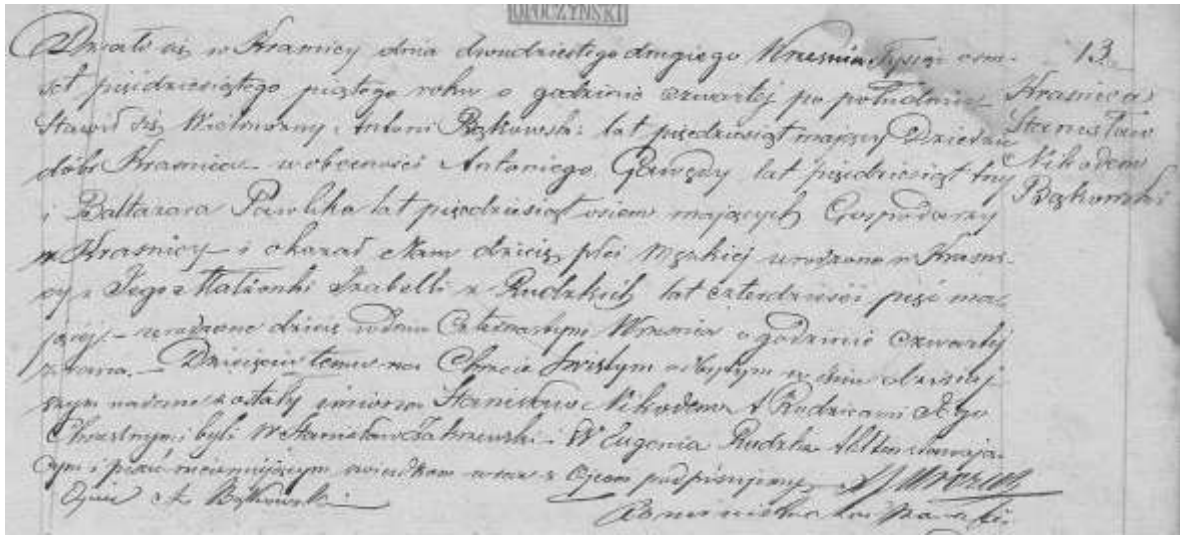 OPOCZYŃSKI
Działo się w Krasnicy dnia dwudziestego drugiego Wrzesnia Tysiąc osm-
set pięćdziesiątego piątego roku o godzinie czwartej po południu
Stawił się Wielmożny Antoni Bąkowski lat pięćdziesiąt mający Dziedzic
dóbr Krasnica w obecności Antoniego Gawędy lat pięćdziesiąt trzy
i Baltazara Pawlika lat pięćdziesiąt osiem mających Gospodarzy
w Krasnicy i okazał Nam dziecię płci męzkiej urodzone w Krasni-
cy z Jego Małżonki Izabelli z Rudzkich lat czterdzieści pięć ma-
jącej urodzone dziecię w dniu Czternastym Wrzesnia o godzinie czwartej
z rana. Dziecięciu temu na Chrzcie Swiętym odbytym w dniu dzisiej-
szym nadane zostały imiona Stanisław Nikodem A Rodzicami Jego
Chrzestnymi byli W Stanisław Zakrzewski i W Eugenia Rudzka Akt ten stawają-
cym i pisać nieumiejącym swiadkom wraz z Ojcem podpisujemy
Ojciec A. Bąkowski
13
Krasnica
Stanisław
Nikodem
Bąkowski